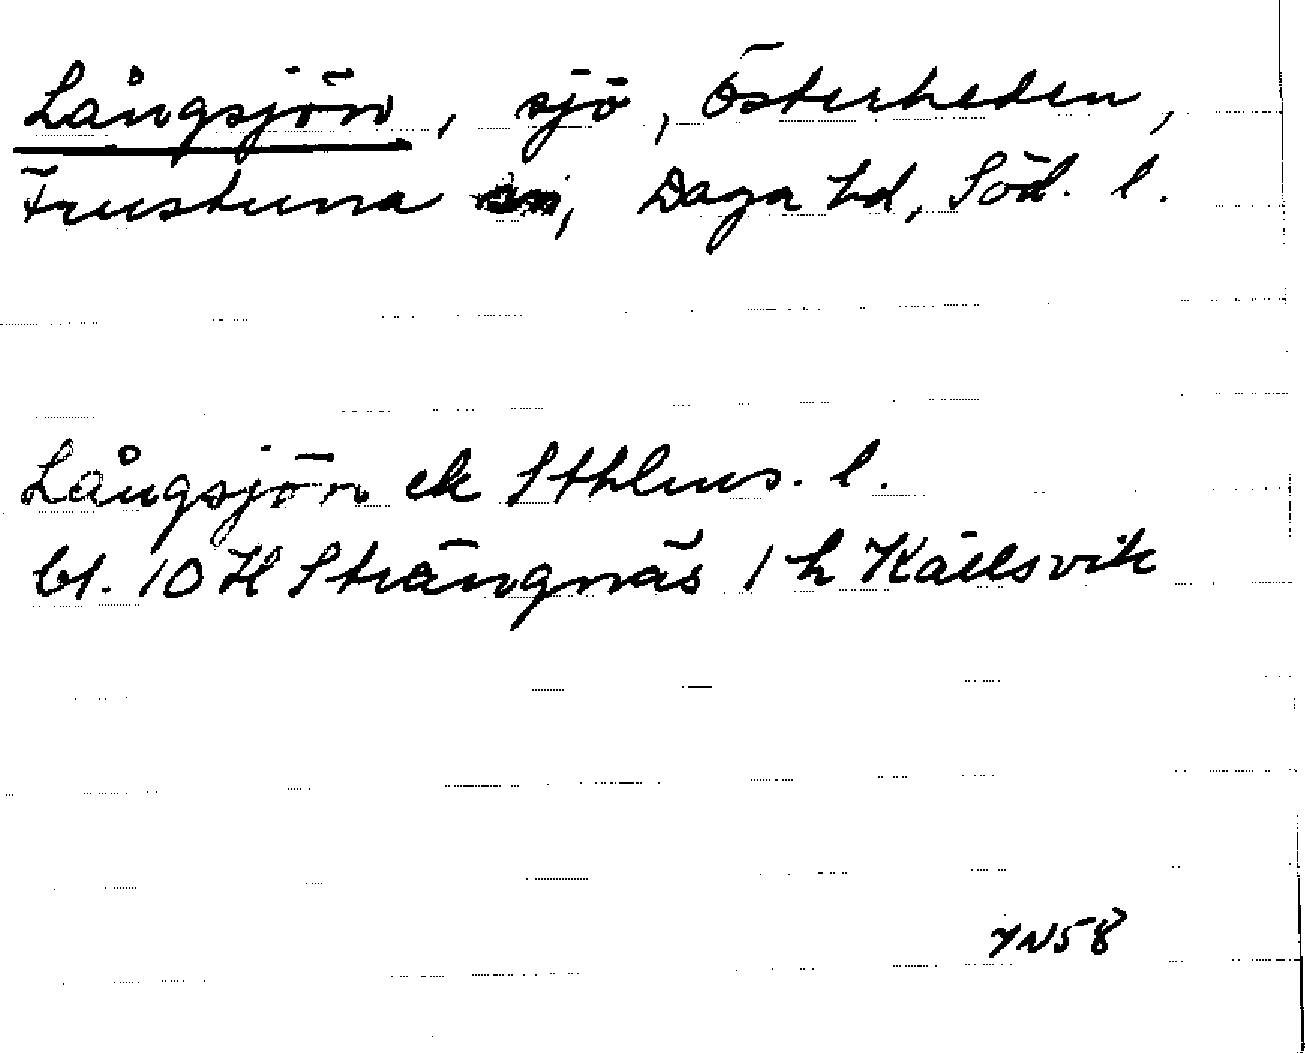 Långsjön, sjö, Österheden,
Frustuna sn, Daga hd, Söd. l.
Långsjön ek Sthlms. l.
bl. 10 H Strängnäs 1 h Källsvik
YN58